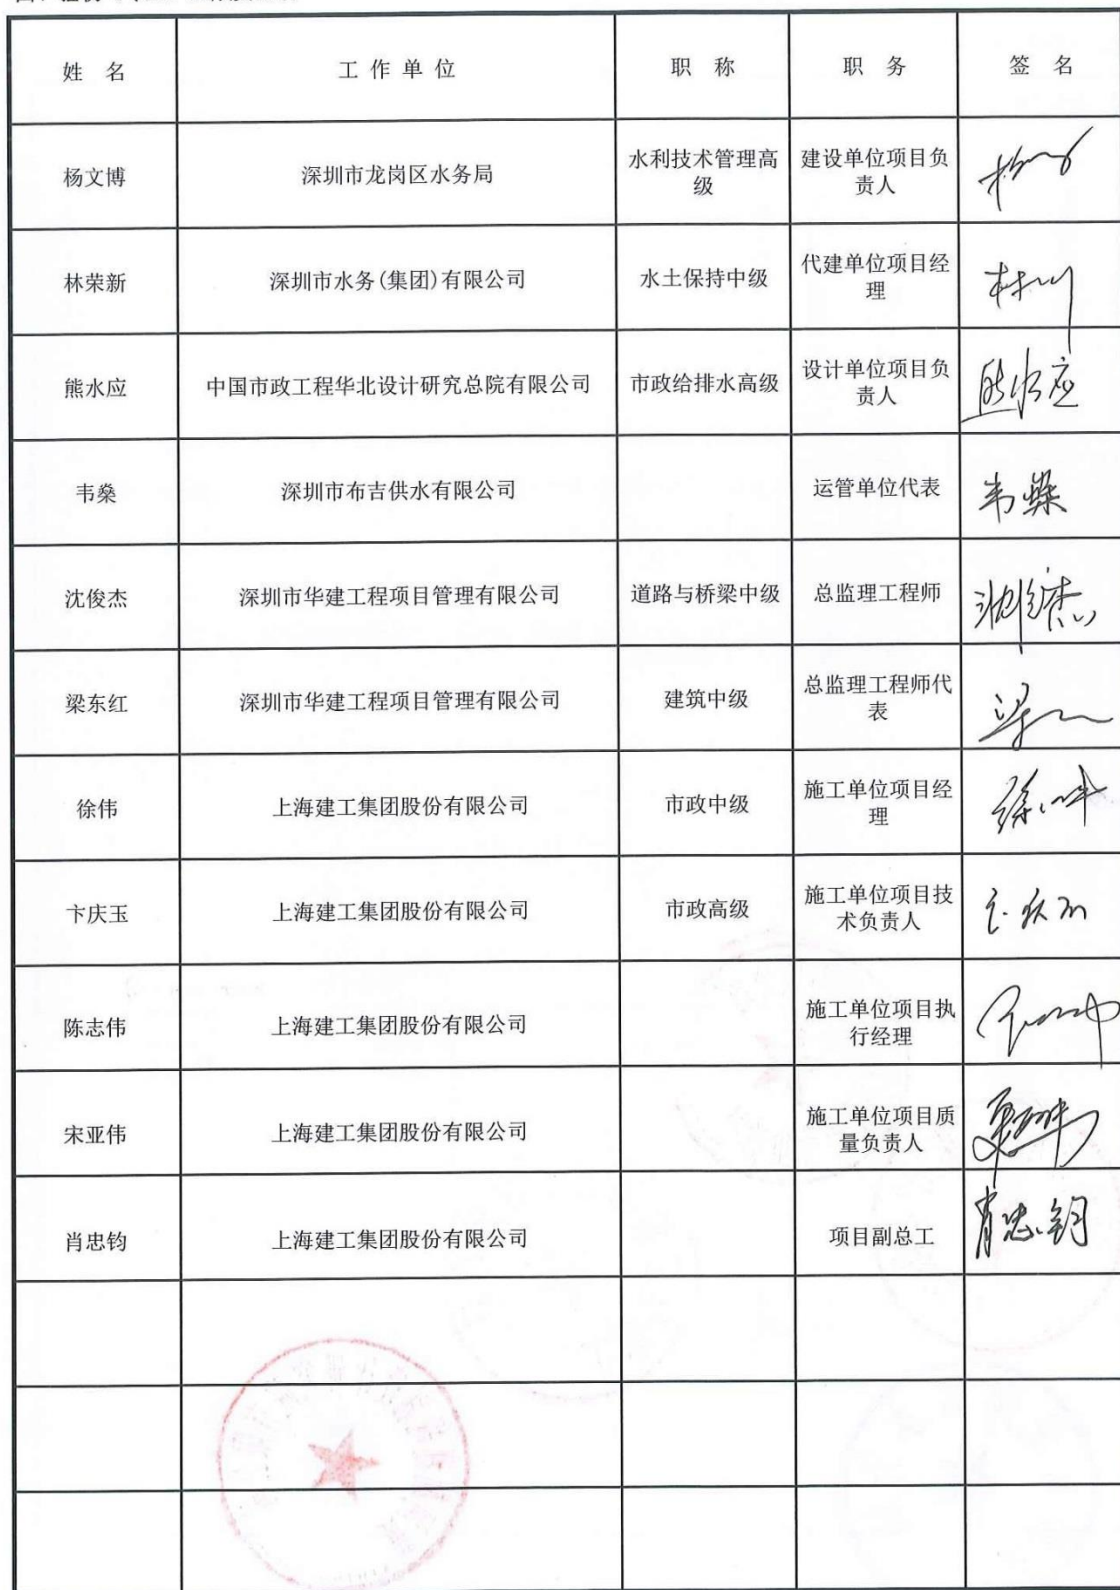 姓 名 工 作 单 位 职 称 职 务 签 名
杨文博 深圳市龙岗区水务局 水利技术管理高级 建设单位项目负责人
林荣新 深圳市水务(集团)有限公司 水土保持中级 代建单位项目经理
熊水应 中国市政工程华北设计研究总院有限公司 市政给排水高级 设计单位项目负责人 熊水应
韦燊 深圳市布吉供水有限公司 运管单位代表 韦燊
沈俊杰 深圳市华建工程项目管理有限公司 道路与桥梁中级 总监理工程师
梁东红 深圳市华建工程项目管理有限公司 建筑中级 总监理工程师代表
徐伟 上海建工集团股份有限公司 市政中级 施工单位项目经理
卞庆玉 上海建工集团股份有限公司 市政高级 施工单位项目技术负责人
陈志伟 上海建工集团股份有限公司 施工单位项目执行经理
宋亚伟 上海建工集团股份有限公司 施工单位项目质量负责人
肖忠钧 上海建工集团股份有限公司 项目副总工 肖忠钧